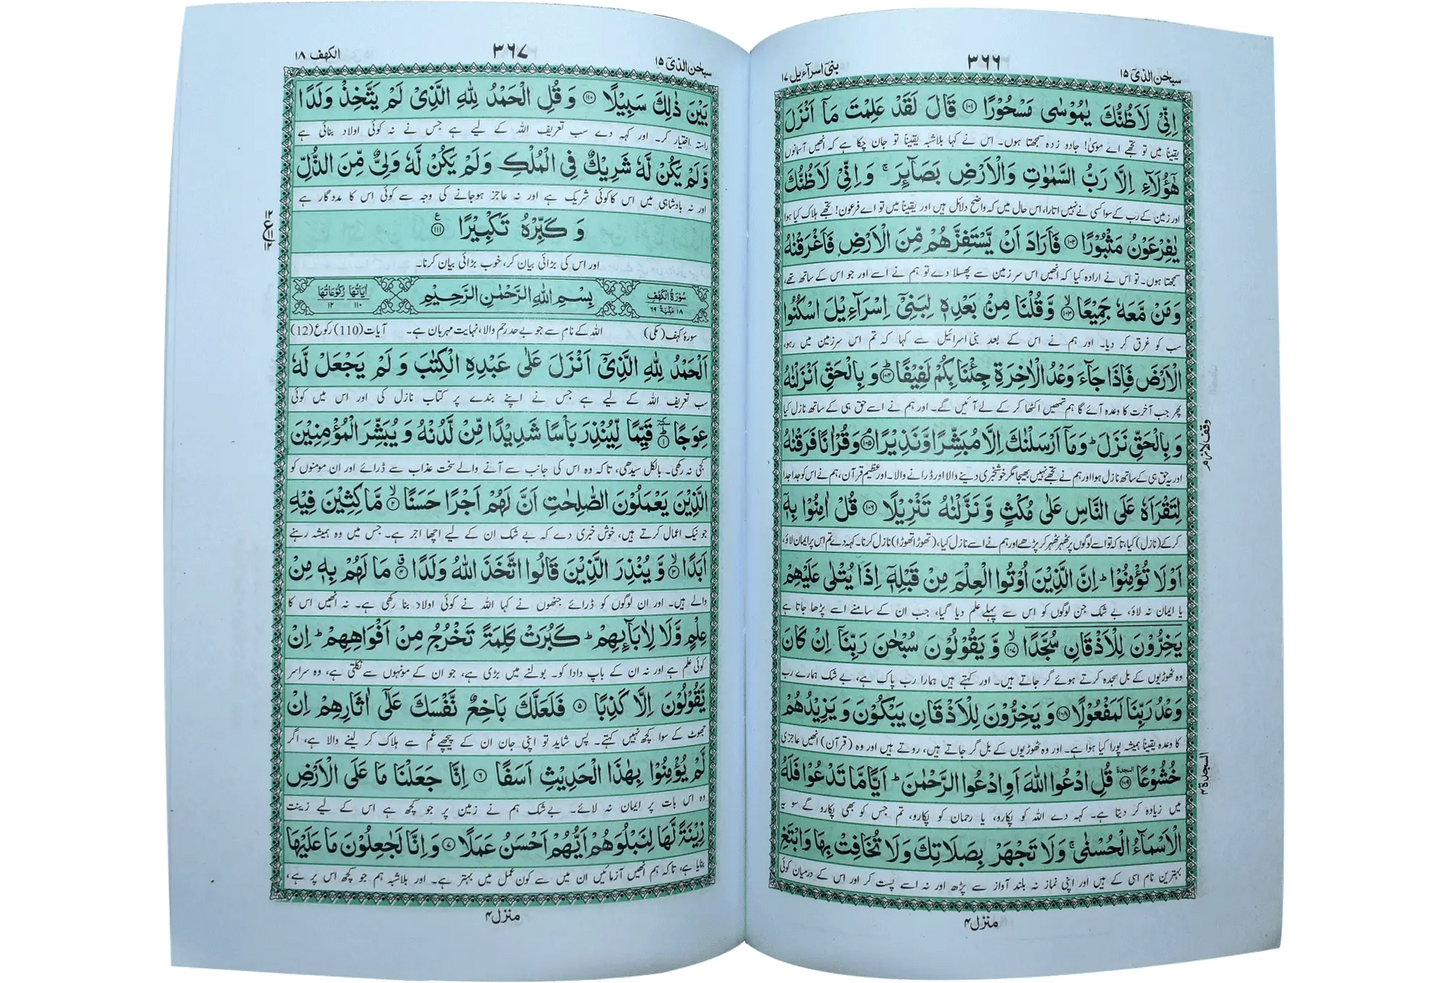 سبحٰن الذی ۱۵
۳۶۶
بنی اسرآءیل ۱۷
اِنِّیْ لَاَظُنُّكَ یٰمُوْسٰی مَسْحُوْرًا ۝۱۰۱ قَالَ لَقَدْ عَلِمْتَ مَاۤ اَنْزَلَ
یقیناً میں تو تجھے اے موسیٰ! جادو زدہ سمجھتا ہوں۔ اس نے کہا بلاشبہ یقیناً تو جان چکا ہے کہ انھیں آسمانوں
هٰۤؤُلَآءِ اِلَّا رَبُّ السَّمٰوٰتِ وَالْاَرْضِ بَصَآىِٕرَ ۚ وَاِنِّیْ لَاَظُنُّكَ
اور زمین کے رب کے سوا کسی نے نہیں اتارا، اس حال میں کہ واضح دلائل ہیں اور یقیناً میں تو اے فرعون! تجھے ہلاک کیا ہوا
یٰفِرْعَوْنُ مَثْبُوْرًا ۝۱۰۲ فَاَرَادَ اَنْ یَّسْتَفِزَّهُمْ مِّنَ الْاَرْضِ فَاَغْرَقْنٰهُ
سمجھتا ہوں۔ تو اس نے ارادہ کیا کہ انھیں اس سرزمین سے پھسلا دے تو ہم نے اسے اور جو اس کے ساتھ تھے،
وَمَنْ مَّعَهٗ جَمِیْعًا ۝۱۰۳ وَّقُلْنَا مِنْۢ بَعْدِهٖ لِبَنِیْۤ اِسْرَآءِیْلَ اسْكُنُوا
سب کو غرق کر دیا۔ اور ہم نے اس کے بعد بنی اسرائیل سے کہا کہ تم اس سرزمین میں رہو،
الْاَرْضَ فَاِذَا جَآءَ وَعْدُ الْاٰخِرَةِ جِئْنَا بِكُمْ لَفِیْفًا ۝۱۰۴ وَبِالْحَقِّ اَنْزَلْنٰهُ
پھر جب آخرت کا وعدہ آئے گا ہم تمھیں اکٹھا کر کے لے آئیں گے۔ اور ہم نے اسے حق ہی کے ساتھ نازل کیا
وَبِالْحَقِّ نَزَلَ ؕ وَمَاۤ اَرْسَلْنٰكَ اِلَّا مُبَشِّرًا وَّنَذِیْرًا ۝۱۰۵ وَقُرْاٰنًا فَرَقْنٰهُ
اور یہ حق ہی کے ساتھ نازل ہوا اور ہم نے تجھے نہیں بھیجا مگر خوشخبری دینے والا اور ڈرانے والا۔ اور عظیم قرآن، ہم نے اس کو جدا جدا
لِتَقْرَاَهٗ عَلَی النَّاسِ عَلٰی مُكْثٍ وَّنَزَّلْنٰهُ تَنْزِیْلًا ۝۱۰۶ قُلْ اٰمِنُوْا بِهٖۤ
کر کے (نازل) کیا، تاکہ تو اسے لوگوں پر ٹھہر ٹھہر کر پڑھے اور ہم نے اسے نازل کیا، (تھوڑا تھوڑا) نازل کرنا۔ کہہ دے تم اس پر ایمان لاؤ،
اَوْ لَا تُؤْمِنُوْا ؕ اِنَّ الَّذِیْنَ اُوْتُوا الْعِلْمَ مِنْ قَبْلِهٖۤ اِذَا یُتْلٰی عَلَیْهِمْ
یا ایمان نہ لاؤ، بے شک جن لوگوں کو اس سے پہلے علم دیا گیا، جب ان کے سامنے اسے پڑھا جاتا ہے
یَخِرُّوْنَ لِلْاَذْقَانِ سُجَّدًا ۝۱۰۷ وَّیَقُوْلُوْنَ سُبْحٰنَ رَبِّنَاۤ اِنْ كَانَ
وہ ٹھوڑیوں کے بل سجدہ کرتے ہوئے گر جاتے ہیں۔ اور کہتے ہیں ہمارا رب پاک ہے، بے شک ہمارے رب
وَعْدُ رَبِّنَا لَمَفْعُوْلًا ۝۱۰۸ وَیَخِرُّوْنَ لِلْاَذْقَانِ یَبْكُوْنَ وَیَزِیْدُهُمْ
کا وعدہ یقیناً ہمیشہ پورا کیا ہوا ہے۔ اور وہ ٹھوڑیوں کے بل گر جاتے ہیں، روتے ہیں اور وہ (قرآن) انھیں عاجزی
خُشُوْعًا ۝۱۰۹ قُلِ ادْعُوا اللّٰهَ اَوِ ادْعُوا الرَّحْمٰنَ ؕ اَیًّا مَّا تَدْعُوْا فَلَهُ
میں زیادہ کر دیتا ہے۔ کہہ دے اللہ کو پکارو، یا رحمان کو پکارو، تم جس کو بھی پکارو گے سو یہ
الْاَسْمَآءُ الْحُسْنٰی ۚ وَلَا تَجْهَرْ بِصَلَاتِكَ وَلَا تُخَافِتْ بِهَا وَابْتَغِ
بہترین نام اسی کے ہیں اور اپنی نماز نہ بلند آواز سے پڑھ اور نہ اسے پست کر اور اس کے درمیان کوئی
وقف لازم
السجدة ۴
منزل ۴
سبحٰن الذی ۱۵
۳۶۷
الکهف ۱۸
بَیْنَ ذٰلِكَ سَبِیْلًا ۝۱۱۰ وَقُلِ الْحَمْدُ لِلّٰهِ الَّذِیْ لَمْ یَتَّخِذْ وَلَدًا
راستہ اختیار کر۔ اور کہہ دے سب تعریف اللہ کے لیے ہے جس نے نہ کوئی اولاد بنائی ہے
وَّلَمْ یَكُنْ لَّهٗ شَرِیْكٌ فِی الْمُلْكِ وَلَمْ یَكُنْ لَّهٗ وَلِیٌّ مِّنَ الذُّلِّ
اور نہ بادشاہی میں اس کا کوئی شریک ہے اور نہ عاجز ہوجانے کی وجہ سے کوئی اس کا مددگار ہے
وَكَبِّرْهُ تَكْبِیْرًا ۝۱۱۱
اور اس کی بڑائی بیان کر، خوب بڑائی بیان کرنا۔
سُوْرَةُ الْكَهْفِ
بِسْمِ اللّٰهِ الرَّحْمٰنِ الرَّحِیْمِ
اٰیَاتُهَا ۱۱۰ رُكُوْعَاتُهَا ۱۲
سورۂ کہف (مکی) اللہ کے نام سے جو بے حد رحم والا، نہایت مہربان ہے۔ آیات (110) رکوع (12)
اَلْحَمْدُ لِلّٰهِ الَّذِیْۤ اَنْزَلَ عَلٰی عَبْدِهِ الْكِتٰبَ وَلَمْ یَجْعَلْ لَّهٗ
سب تعریف اللہ کے لیے ہے جس نے اپنے بندے پر کتاب نازل کی اور اس میں کوئی
عِوَجًا ۝۱ قَیِّمًا لِّیُنْذِرَ بَاْسًا شَدِیْدًا مِّنْ لَّدُنْهُ وَیُبَشِّرَ الْمُؤْمِنِیْنَ
کجی نہ رکھی۔ بالکل سیدھی، تاکہ وہ اس کی جانب سے آنے والے سخت عذاب سے ڈرائے اور ان مومنوں کو
الَّذِیْنَ یَعْمَلُوْنَ الصّٰلِحٰتِ اَنَّ لَهُمْ اَجْرًا حَسَنًا ۝۲ مَّاكِثِیْنَ فِیْهِ
جو نیک اعمال کرتے ہیں، خوش خبری دے کہ بے شک ان کے لیے اچھا اجر ہے۔ جس میں وہ ہمیشہ رہنے
اَبَدًا ۝۳ وَّیُنْذِرَ الَّذِیْنَ قَالُوا اتَّخَذَ اللّٰهُ وَلَدًا ۝۴ مَا لَهُمْ بِهٖ مِنْ
والے ہیں۔ اور ان لوگوں کو ڈرائے جنھوں نے کہا اللہ نے کوئی اولاد بنا رکھی ہے۔ نہ انھیں اس کا
عِلْمٍ وَّلَا لِاٰبَآىِٕهِمْ ؕ كَبُرَتْ كَلِمَةً تَخْرُجُ مِنْ اَفْوَاهِهِمْ ؕ اِنْ
کوئی علم ہے اور نہ ان کے باپ دادا کو۔ بولنے میں بڑی ہے، جو ان کے مونہوں سے نکلتی ہے، وہ سراسر
یَّقُوْلُوْنَ اِلَّا كَذِبًا ۝۵ فَلَعَلَّكَ بَاخِعٌ نَّفْسَكَ عَلٰۤی اٰثَارِهِمْ اِنْ
جھوٹ کے سوا کچھ نہیں کہتے۔ پس شاید تو اپنی جان ان کے پیچھے غم سے ہلاک کر لینے والا ہے، اگر
لَّمْ یُؤْمِنُوْا بِهٰذَا الْحَدِیْثِ اَسَفًا ۝۶ اِنَّا جَعَلْنَا مَا عَلَی الْاَرْضِ
وہ اس بات پر ایمان نہ لائے۔ بے شک ہم نے زمین پر جو کچھ ہے اس کے لیے زینت
زِیْنَةً لَّهَا لِنَبْلُوَهُمْ اَیُّهُمْ اَحْسَنُ عَمَلًا ۝۷ وَاِنَّا لَجٰعِلُوْنَ مَا عَلَیْهَا
بنایا ہے، تاکہ ہم انھیں آزمائیں ان میں سے کون عمل میں بہتر ہے۔ اور بلاشبہ ہم جو کچھ اس پر ہے،
منزل ۴